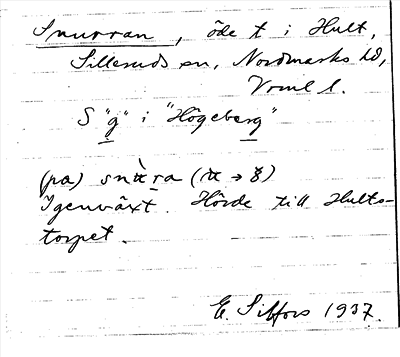 Snurran, öde t i Hult,
Silleruds sn, Nordmarks hd,
Vrml l.
S "g" i "Högeberg"
(pa) snùra ( → )
Igenväxt. Hörde till Hults-
torpet.
E. Siffors 1937.